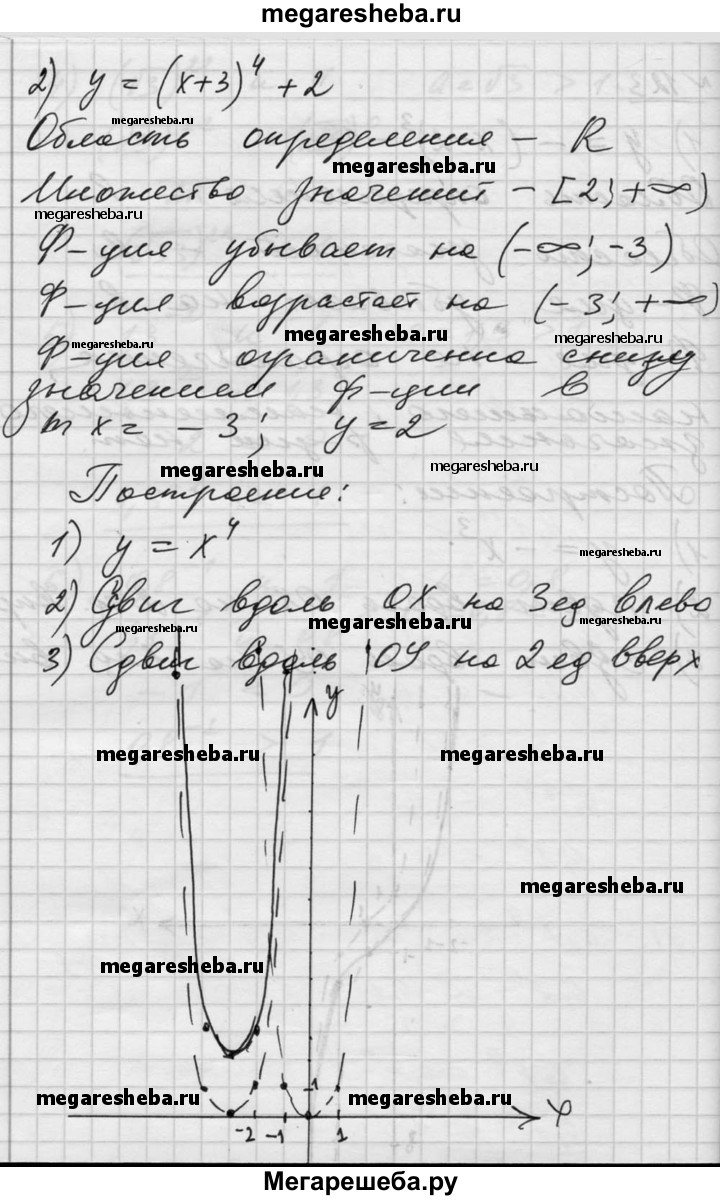 megaresheba.ru
2) y = (x+3)^4 + 2
megaresheba.ru
Область определения – R
megaresheba.ru
Множество значений – [2; +∞)
megaresheba.ru
Ф-ция убывает на (-∞; -3)
Ф-ция возрастает на (-3; +∞)
megaresheba.ru megaresheba.ru
Ф-ция ограниченна снизу
значением ф-ции в
m x = -3; y = 2
megaresheba.ru megaresheba.ru
Построение:
1) y = x^4
megaresheba.ru
2) Сдвиг вдоль OX на 3ед влево
megaresheba.ru megaresheba.ru megaresheba.ru
3) Сдвиг вдоль OY на 2 ед вверх
y
megaresheba.ru megaresheba.ru
megaresheba.ru
megaresheba.ru
1
megaresheba.ru megaresheba.ru
x
-2 -1 1
Мегарешеба.ру